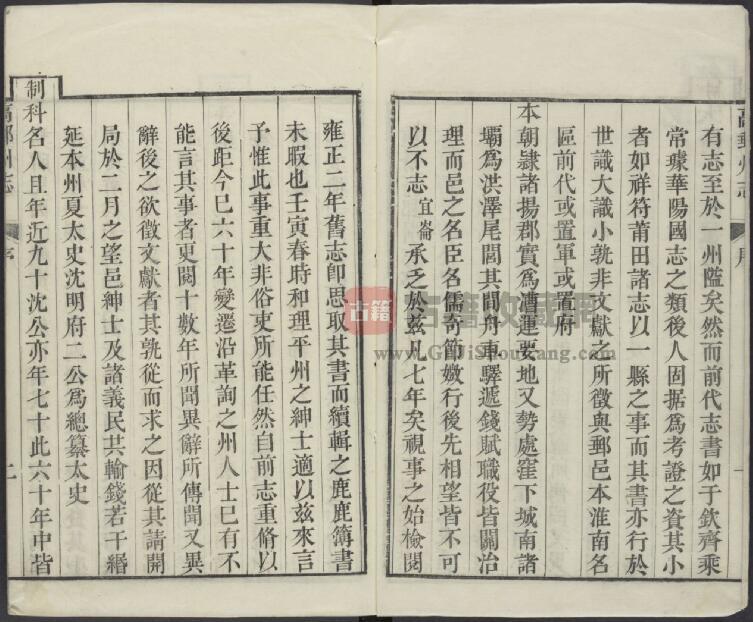 有志至於一州隘矣然而前代志書如于欽齊乘
常璩華陽國志之類後人固据為考證之資其小
者如祥符莆田諸志以一縣之事而其書亦行於
世識大識小孰非文獻之所徵與郵邑本淮南名
區前代或置軍或置府
本朝隷諸揚郡實為漕運要地又勢處窪下城南諸
壩為洪澤尾閭其間舟車驛遞錢賦職役皆關治
理而邑之名臣名儒奇節媺行後先相望皆不可
以不志宜崙承乏於兹凡七年矣視事之始檢閱
高郵州志
序
一
雍正二年舊志卽思取其書而續輯之鹿鹿簿書
未暇也壬寅春時和理平州之紳士適以兹來言
予惟此事重大非俗吏所能任然自前志重脩以
後距今巳六十年變遷沿革詢之州人士巳有不
能言其事者更閱十數年所聞異辭所傳聞又異
辭後之欲徵文獻者其孰從而求之因從其請開
局於二月之望邑紳士及諸義民共輸錢若干緡
延本州夏太史沈明府二公為總纂太史
制科名人且年近九十沈公亦年七十此六十年中皆
高郵州志
序
二
古籍
古籍收藏网
www.GuJiShouCang.com